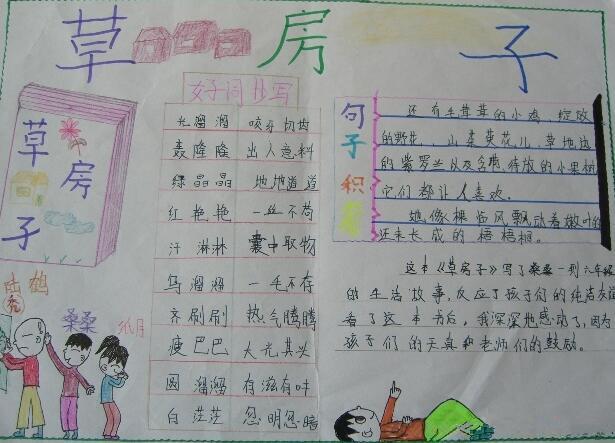 草房子
草房子
陆鹤
秃
桑桑
纸月
好词书写
光溜溜 咬牙切齿
轰隆隆 出人意料
绿晶晶 地地道道
红艳艳 一丝不苟
汗淋淋 囊中取物
乌溜溜 一毛不存
齐刷刷 热气腾腾
疲巴巴 大光其头
圆溜溜 有滋有味
白茫茫 忽明忽暗
句子积
还有毛茸茸的小鸡,绽放
的野花,山菜英花儿,草地边
的紫罗兰以及含苞待放的小果树
它们都让人喜欢。
她像棵临风飘动着嫩叶的
还未长成的梧桐树。
这本《草房子》写了桑桑一到六年级
的生活故事,反应了孩子们的纯洁友谊
看了这本书后,我深深地感动了,因为
孩子们的天真和老师们的鼓励。